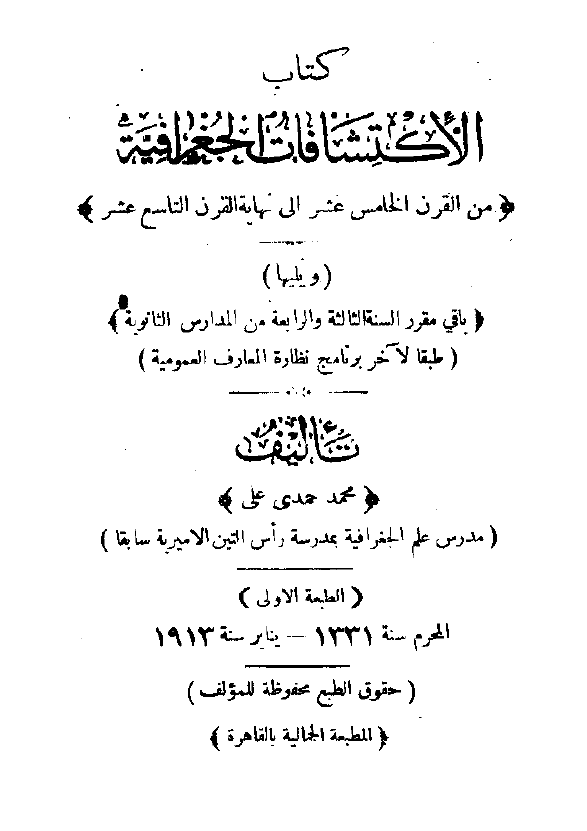 كتاب
الاكتشافات الجغرافية
﴿ من القرن الخامس عشر الى نهاية القرن التاسع عشر ﴾
( ويليها )
﴿ باقي مقرر السنة الثالثة والرابعة من المدارس الثانوية ﴾
( طبقا لآخر برنامج نظارة المعارف العمومية )
تأليف
﴿ محمد حمدى على ﴾
( مدرس علم الجغرافية بمدرسة رأس التين الاميرية سابقا )
( الطبعة الاولى )
المحرم سنة ١٣٣١ — يناير سنة ١٩١٣
( حقوق الطبع محفوظة للمؤلف )
﴿ المطبعة الجمالية بالقاهرة ﴾